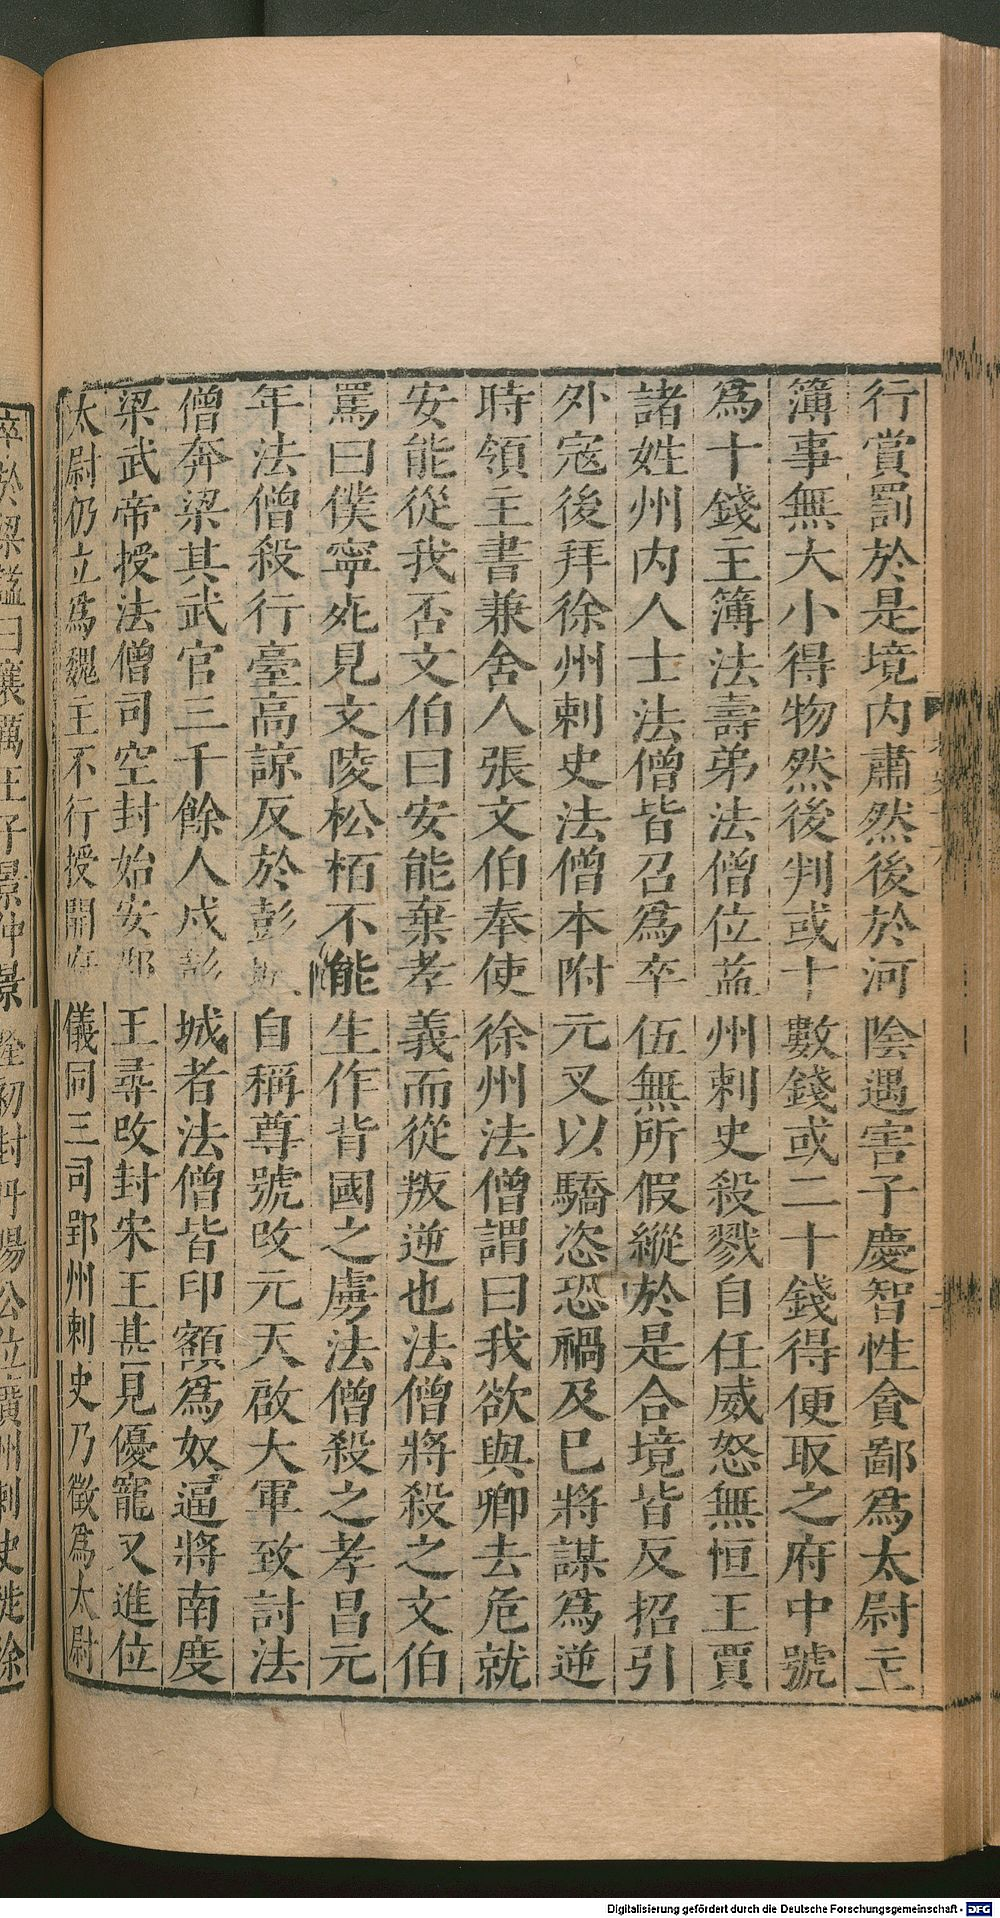 行賞罰於是境内肅然後於河陰遇害子慶智性貪鄙爲太尉主
簿事無大小得物然後判或十數錢或二十錢得便取之府中號
爲十錢主簿法壽弟法僧位益州刺史殺戮自任威怒無恒王賈
諸姓州内人士法僧皆召爲卒伍無所假縱於是合境皆反招引
外寇後拜徐州刺史法僧本附元叉以驕恣恐禍及巳將謀爲逆
時領主書兼舍人張文伯奉使徐州法僧謂曰我欲與卿去危就
安能從我否文伯曰安能棄孝義而從叛逆也法僧將殺之文伯
罵曰僕寧死見文陵松栢不能生作背國之虜法僧殺之孝昌元
年法僧殺行臺高諒反於彭城自稱尊號改元天啟大軍致討法
僧奔梁其武官三千餘人戍彭城者法僧皆印額爲奴逼將南度
梁武帝授法僧司空封始安郡王尋改封宋王甚見優寵又進位
太尉仍立爲魏主不行授開府儀同三司郢州刺史乃徵爲太尉
卒於梁謚曰襄厲王子景仲景隆初封丹陽公位廣州刺史徙徐
Digitalisierung gefördert durch die Deutsche Forschungsgemeinschaft - DFG